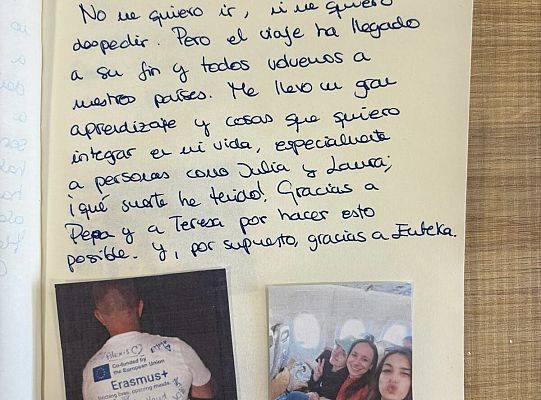 No me quiero ir, ni me quiero
despedir. Pero el viaje ha llegado
a su fin y todos volvemos a
nuestros países. Me llevo un gran
aprendizaje y cosas que quiero
integrar en mi vida, especialmente
a personas como Julia y Laura;
¡qué suerte he tenido! Gracias a
Pepa y a Teresa por hacer esto
posible. Y, por supuesto, gracias a Euteka.
Alexis
Co-funded by
the European Union
Erasmus+